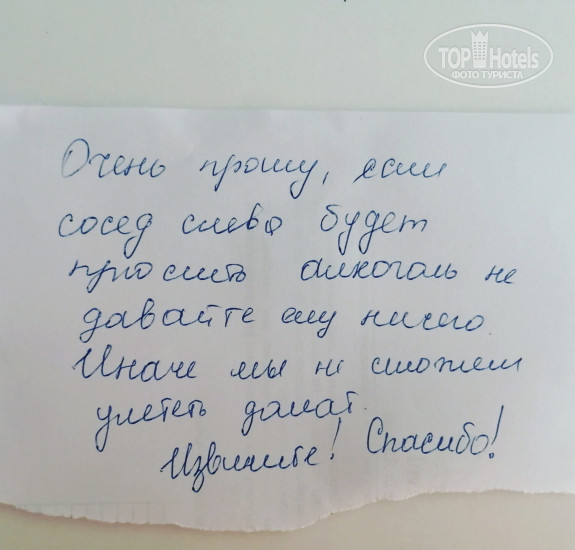 TOP Hotels
ФОТО ТУРИСТА
Очень прошу, если
сосед слева будет
просить алкоголь не
давайте ему ничего.
Иначе мы не сможем
улететь домой.
Извините! Спасибо!